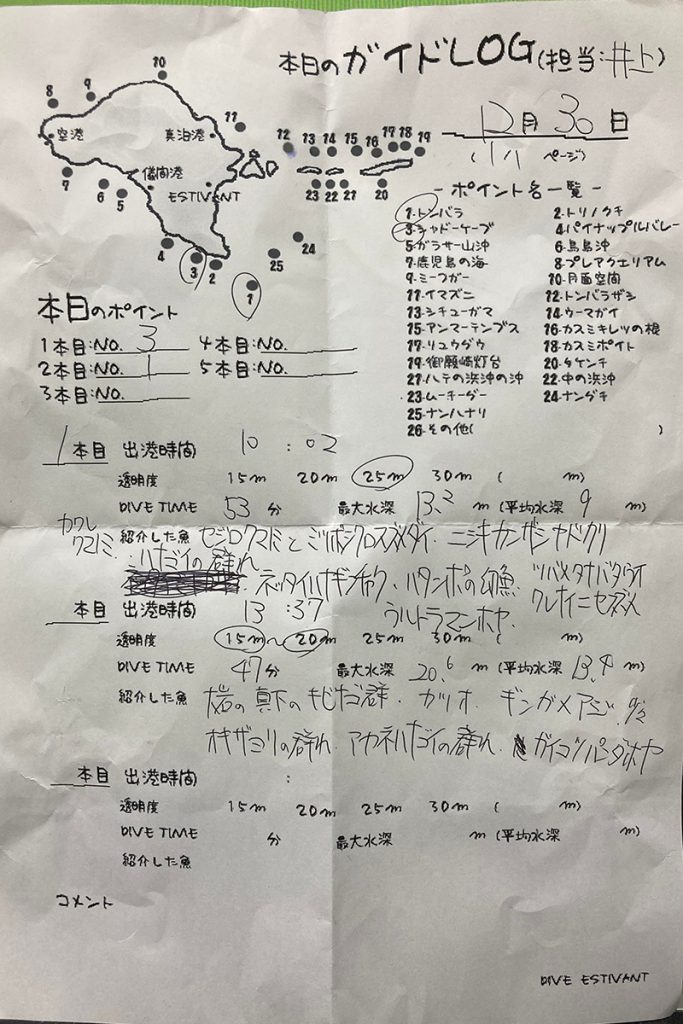 本日のガイドLOG(担当:井上)
12月30日
( ページ)
10
8 9
空港 真泊港 11
12 13 14 15 16 17 18 19
儀間港
7 6 5 ESTIVANT 23 22 21 20
4 3 2 25 24
1
- ポイント名一覧 -
1.トンバラ 2.トリノクチ
3.シャドーケーブ 4.パイナップルバレー
5.ガラサー山沖 6.鳥島沖
7.鹿児島の海 8.プレアクエリアム
9.ミーフガー 10.月面空間
11.イマズニ 12.トンバラザシ
13.シチューガマ 14.ウーマガイ
15.アンマーテンブス 16.カスミキレツの根
17.リュウグウ 18.カスミポイント
19.御願崎灯台 20.タケンチ
21.ハテの浜沖の沖 22.中の浜沖
23.ムーチーグー 24.ナングチ
25.ナンハナリ
26.その他( )
本日のポイント
1本目:NO. 3 4本目:NO.
2本目:NO. 1 5本目:NO.
3本目:NO.
1本目 出港時間 10:02
透明度 15m 20m 25m 30m ( m)
DIVE TIME 53分 最大水深 13.2m (平均水深 9m)
カクレクマノミ
紹介した魚 セジロクマノミとミツボシクロスズメダイ.ニシキカンザシヤドカリ
ハナゴイの群れ
ネッタイハナギンチャク、ハタンポの幼魚 ツバメタナバタウオ
ウルトラマンホヤ. クレナイニセスズメ
本目 出港時間 13:37
透明度 15m~20m 25m 30m ( m)
DIVE TIME 47分 最大水深 20.6m (平均水深 13.4m)
紹介した魚 大岩の真下のキビナゴ群.カツオ.ギンガメアジ.
オキザヨリの群れ.アカネハナゴイの群れ.ガイコツパンダホヤ
本目 出港時間 :
透明度 15m 20m 25m 30m ( m)
DIVE TIME 分 最大水深 m (平均水深 m)
紹介した魚
コメント
DIVE ESTIVANT